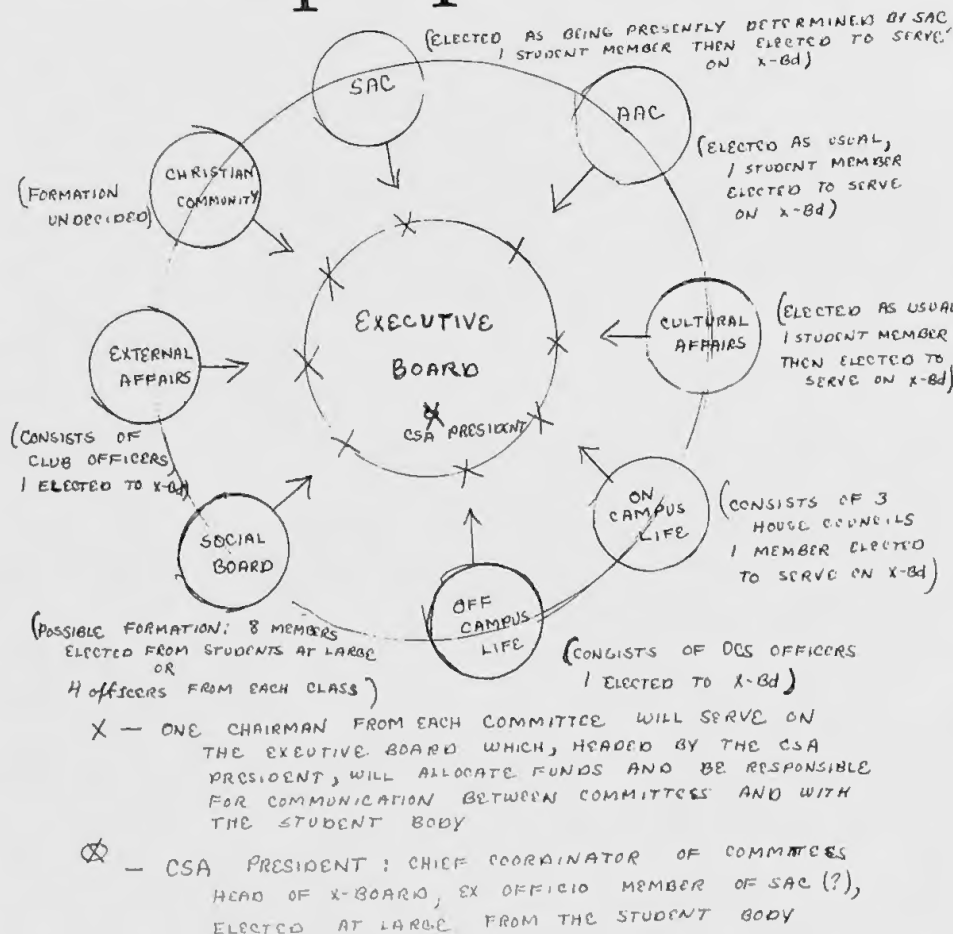 (ELECTED AS BEING PRESENTLY DETERMINED BY SAC,
1 STUDENT MEMBER THEN ELECTED TO SERVE
ON X-Bd)
SAC
AAC
(ELECTED AS USUAL,
1 STUDENT MEMBER
ELECTED TO SERVE
ON X-Bd)
CHRISTIAN
COMMUNITY
(FORMATION
UNDECIDED)
EXECUTIVE
BOARD
CSA PRESIDENT
CULTURAL
AFFAIRS
(ELECTED AS USUAL
1 STUDENT MEMBER
THEN ELECTED TO
SERVE ON X-Bd)
EXTERNAL
AFFAIRS
(CONSISTS OF
CLUB OFFICERS,
1 ELECTED TO X-Bd)
ON
CAMPUS
LIFE
(CONSISTS OF 3
HOUSE COUNCILS
1 MEMBER ELECTED
TO SERVE ON X-Bd)
SOCIAL
BOARD
(POSSIBLE FORMATION: 8 MEMBERS
ELECTED FROM STUDENTS AT LARGE
OR
4 OFFICERS FROM EACH CLASS)
OFF
CAMPUS
LIFE
(CONSISTS OF OCS OFFICERS
1 ELECTED TO X-Bd)
X — ONE CHAIRMAN FROM EACH COMMITTEE WILL SERVE ON
THE EXEUTIVE BOARD WHICH, HEADED BY THE CSA
PRESIDENT, WILL ALLOCATE FUNDS AND BE RESPONSIBLE
FOR COMMUNICATION BETWEEN COMMITTEES AND WITH
THE STUDENT BODY
Ⓧ — CSA PRESIDENT: CHIEF COORDINATOR OF COMMITEES
HEAD OF X-BOARD, EX OFFICIO MEMBER OF SAC (?),
ELECTED AT LARGE FROM THE STUDENT BODY